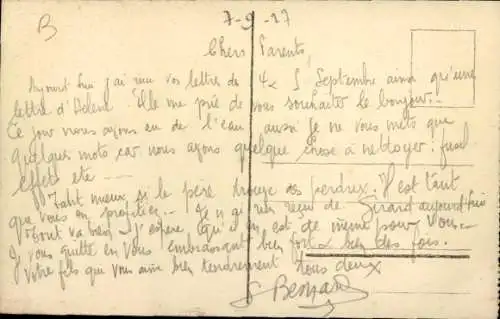 B
7-9-27
Chers Parents,
Aujourd'hui j'ai reçu vos lettres des 4 & 5 Septembre ainsi qu'une
lettre d'Helene. Elle me prie de vous souhaiter le bonjour..
Ce jour nous avons eu de l'eau aussi je ne vous mets que
quelques mots car nous avons quelque chose à nettoyer: fusil
effets etc ——
Tant mieux si le père trouve des perdrux. Il est tant
que vous en profitiez.. Je n'ai rien reçu de Girard aujourd'hui
Tout va bien J'espère qu'il en est de même pour Vous..
Je vous quitte en vous embrassant bien fort & bien des fois.
Votre fils que vous aime bien tendrement tous deux
Bernard